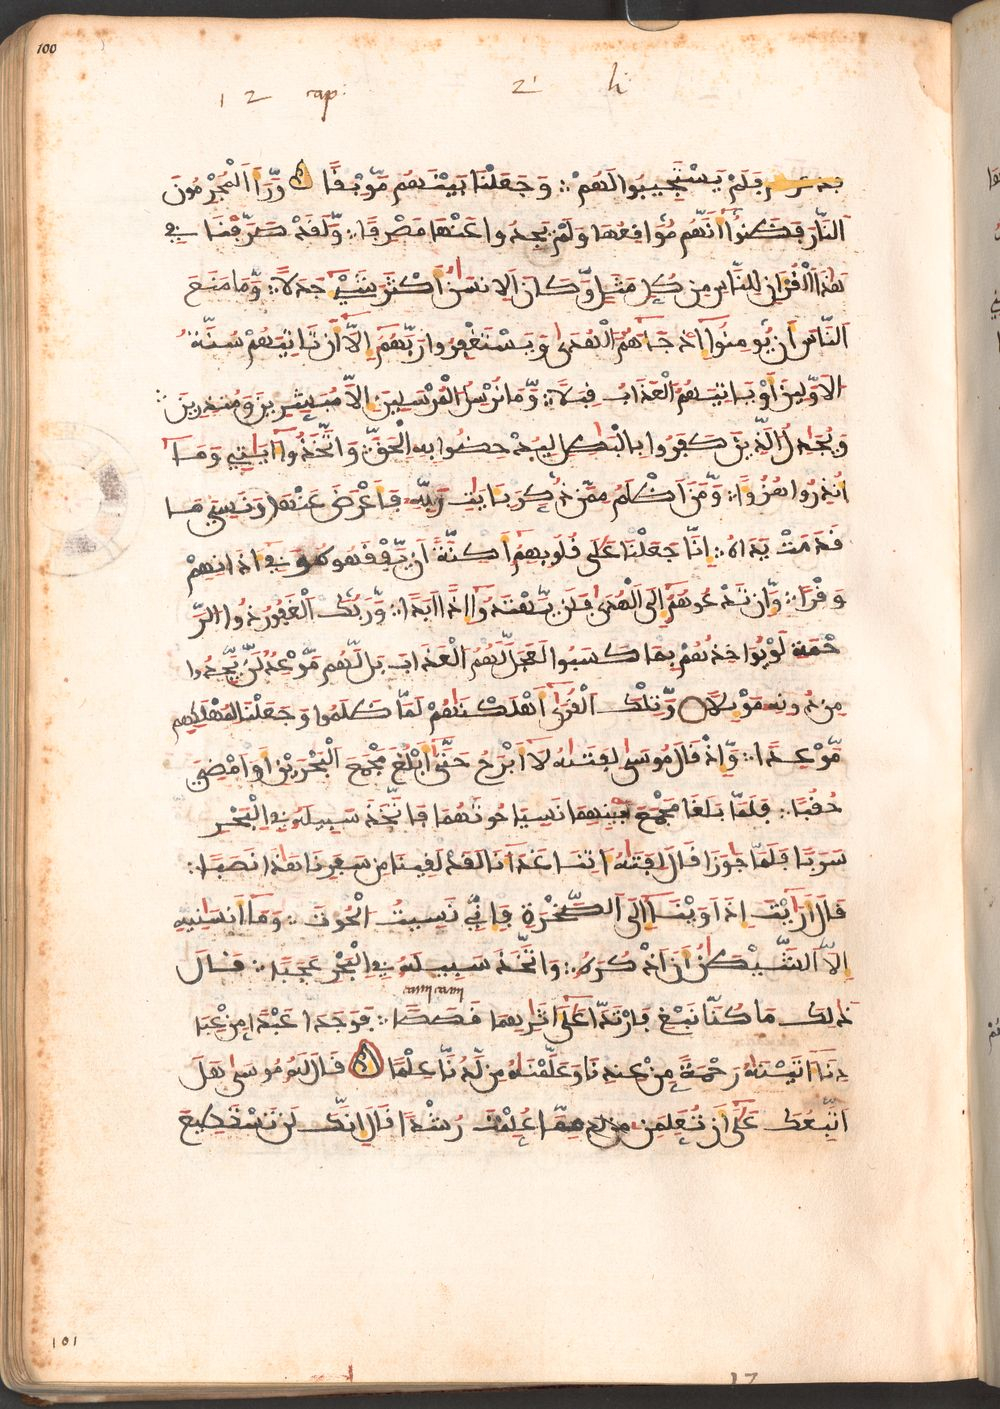 100
12 cap: 2' li
فدعوهم فلم يستجيبوا لهم ∴ وجعلنا بينهم موبقا ورأا المجرمون
النار فظنوا أنهم مواقعوها ولم يجدوا عنها مصرفا ∴ ولقد صرفنا في
هذا القرءان للناس من كل مثل وكان الانسن أكثر شيء جدلا ∴ وما منع
الناس أن يومنوا اذ جاءهم الهدى ويستغفروا ربهم إلا أن تاتيهم سنة
الاولين أو ياتيهم العذاب قبلا ∴ وما نرسل المرسلين الا مبشرين ومنذرين ∴
ويجدل الذين كفروا بالبطل ليدحضوا به الحق واتخذوا ءايتي وما
انذروا هزوا ∴ ومن اظلم ممن ذكر بايت ربه فاعرض عنها ونسي ما
قدمت يداه ∴ إنا جعلنا على قلوبهم أكنة أن يفقهوه وفي ءاذانهم
وقرا ∴ وان تدعوهم إلى الهدى فلن يهتدوا إذا ابدا ∴ وربك الغفور ذوا الر
حمة لو يواخذهم بما كسبوا لعجل لهم العذاب بل لهم موعد لن يجدوا
من دونه موئلا وتلك القرى أهلكنهم لما ظلموا وجعلنا لمهلكهم
موعدا ∴ وإذ قال موسى لفتىه لا أبرح حتى أبلغ مجمع البحرين او امضي
حقبا ∴ فلما بلغا مجمع بينهما نسيا حوتهما فاتخذ سبيله في البحر
سربا فلما جوزا قال لفتىه ءاتنا غداءنا لقد لقينا من سفرنا هذا نصبا ∴
قال أرايت اذ اوينا إلى الصخرة فإني نسيت الحوت ∴ وما أنسنيه
إلا الشيطن أن اذكره ∴ واتخذ سبيله في البحر عجبا ∴ قال
cami cami
ذلك ما كنا نبغ فارتدا على اثارهما قصصا ∴ فوجدا عبدا من عبا
دنا ءاتينه رحمة من عندنا وعلمنه من لدنا علما قال له موسى هل
اتبعك على أن تعلمن مما علمت رشدا قال انك لن تستطيع
101